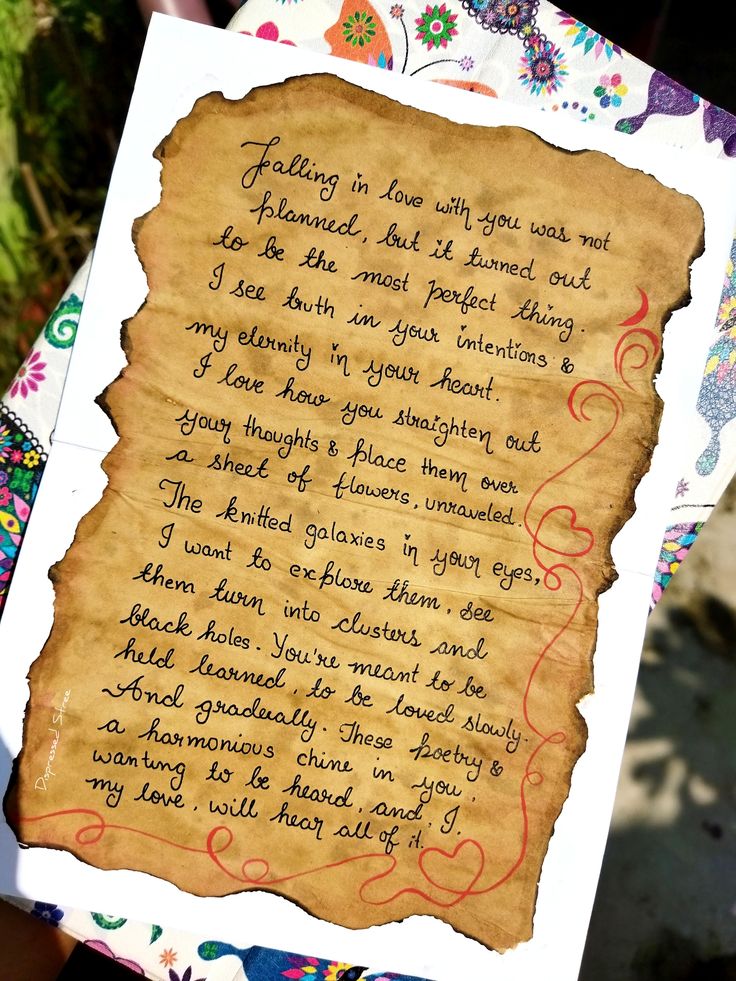 Falling in love with you was not
planned, but it turned out
to be the most perfect thing.
I see truth in your intentions &
my eternity in your heart.
I love how you straighten out
your thoughts & place them over
a sheet of flowers, unraveled.
The knitted galaxies in your eyes,
I want to explore them, see
them turn into clusters and
black holes. You're meant to be
held learned, to be loved slowly.
And graderally. These poetry &
a harmonious chine in you,
wanting to be heard, and, I,
my love, will hear all of it.
Dispressed Sfree